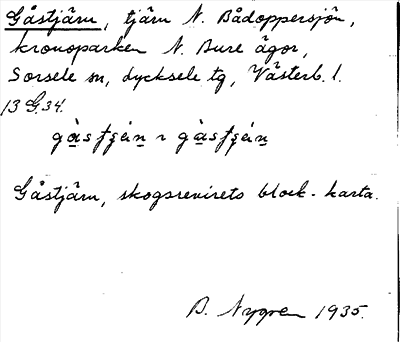 Gåstjärn, tjärn N. Bådoppersjön,
kronoparken N. Bure ägor,
Sorsele sn, Lycksele tg, Västerb. l.
13 G. 34.
Gåstjärn, skogsrevirets block-karta.
B. Nygren 1935.